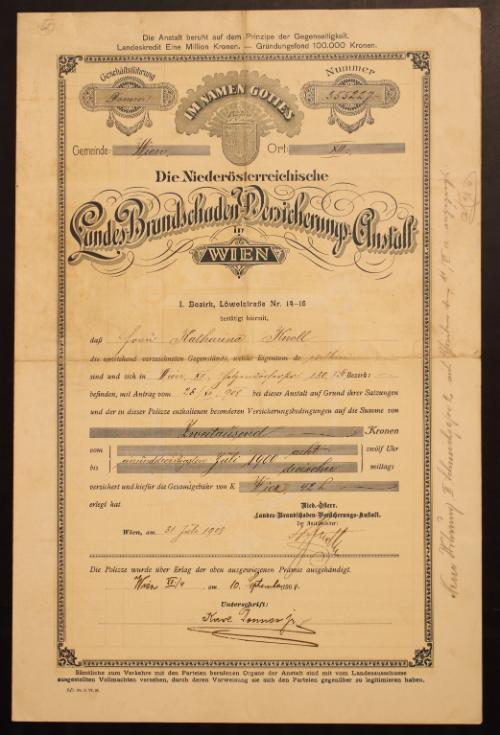 Die Anstalt beruht auf dem Prinzipe der Gegenseitigkeit.
Landeskredit Eine Million Kronen. — Gründungsfond 100.000 Kronen.
Geschäftsführung
Nummer
355227
IM NAMEN GOTTES
Gemeinde: Wien Ort: XII.
Die Niederösterreichische
Landes-Brandschaden-Versicherungs-Anstalt
in
WIEN
I. Bezirk, Löwelstraße Nr. 14-16
bestätigt hiermit,
daß Frau Katharina Knoll
die umstehend verzeichneten Gegenstände, welche Eigentum de
sind und sich in Wien, XII. Bezirk:
befinden, mit Antrag vom 28 908 bei dieser Anstalt auf Grund ihrer Satzungen
und der in dieser Polizze enthaltenen besonderen Versicherungsbedingungen auf die Summe von
Zweitausend Kronen
vom acht zwölf Uhr
einunddreißigsten Juli 190
bis mittags
versichert und hiefür die Gesamtgebühr von K Vier 42 h
erlegt hat.
Nied.-österr.
Landes-Brandschaden-Versicherungs-Anstalt.
Der Amtsleiter:
Wien, am 31 Juli 1908
Die Polizze wurde über Erlag der oben ausgewiesenen Prämie ausgehändigt.
Wien am 10. September 1908.
Unterschrift:
Karl
Sämtliche zum Verkehre mit den Parteien berufenen Organe der Anstalt sind mit vom Landesausschusse
ausgestellten Vollmachten versehen, durch deren Vorweisung sie sich den Parteien gegenüber zu legitimieren haben.